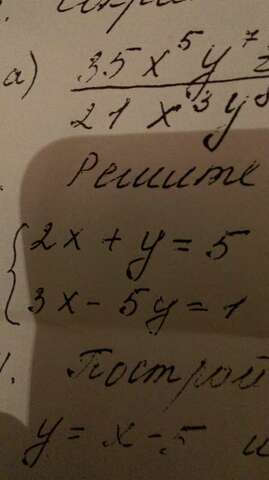 а) 35x⁵y⁷
21 x³y⁸
Решите
{2x + y = 5
3x - 5y = 1
Построй
y = x - 5 и